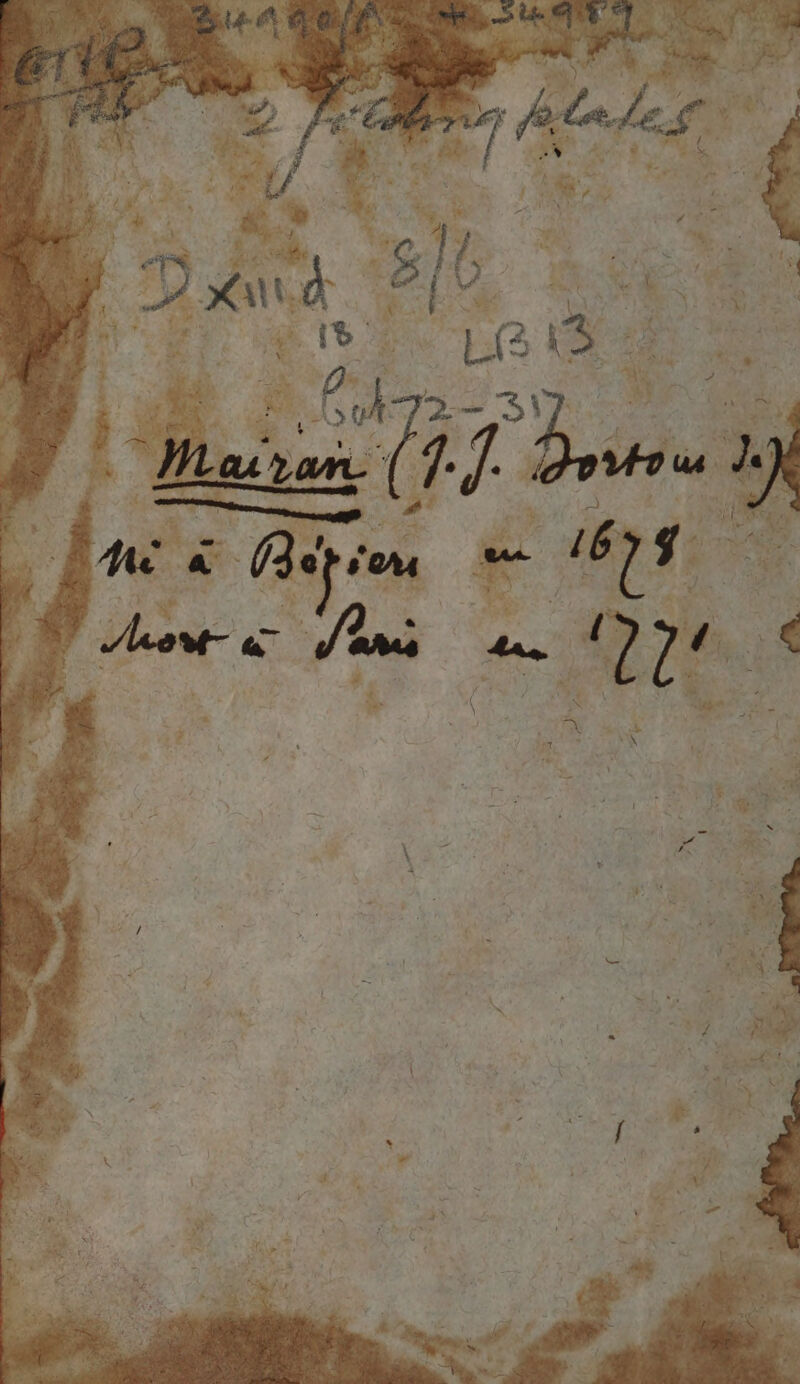 34990/A + 34989
2 folding plates
D xiii d 8/6
18 LB 13
72-317
Mairan (J.J. Dortous de)
Né à Béziers en 1678
Mort à Paris en 1771